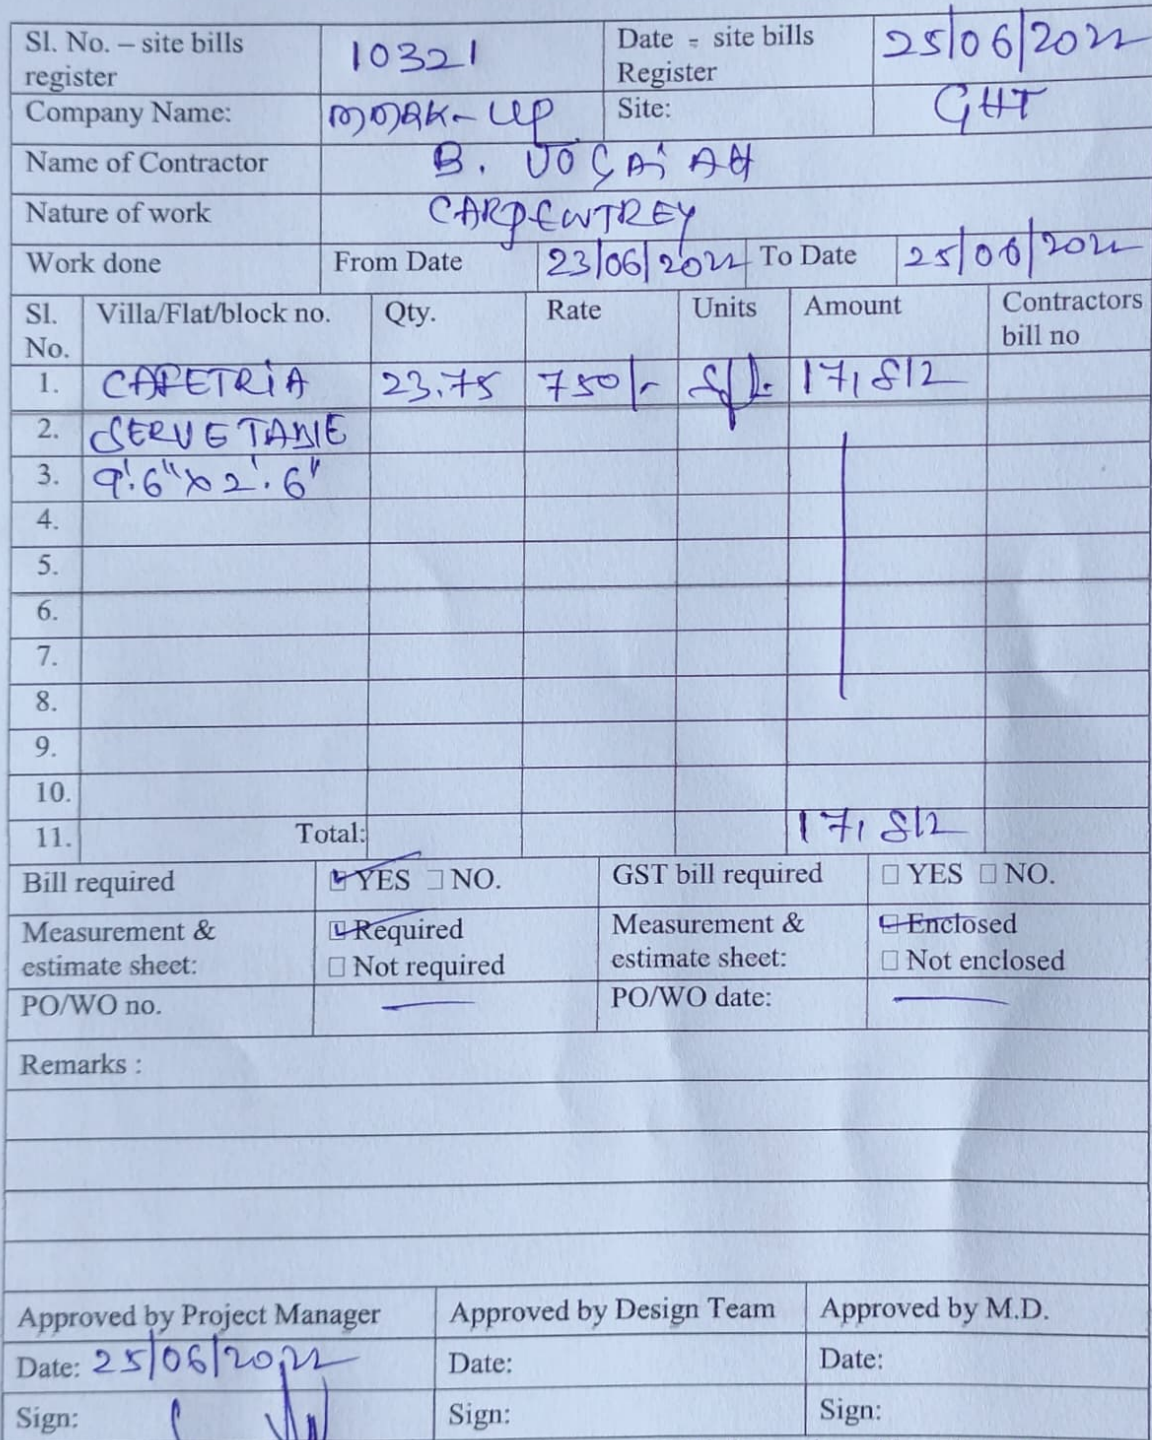 Sl. No. – site bills register 10321 Date - site bills Register 25/06/2022
Company Name: MARK-UP Site: GHT
Name of Contractor B.
Nature of work CARPENTREY
Work done From Date 23/06/2022 To Date 25/06/2022
Sl. No. Villa/Flat/block no. Qty. Rate Units Amount Contractors bill no
1. CAFETRIA 23.75 750/- 17,812
2. SERVE TABLE
3. 9'.6"x2'.6"
4.
5.
6.
7.
8.
9.
10.
11. Total: 17,812
Bill required YES NO. GST bill required YES NO.
Measurement & estimate sheet: Required Not required Measurement & estimate sheet: Enclosed Not enclosed
PO/WO no. — PO/WO date: —
Remarks :
Approved by Project Manager Approved by Design Team Approved by M.D.
Date: 25/06/2022 Date: Date:
Sign: Sign: Sign: